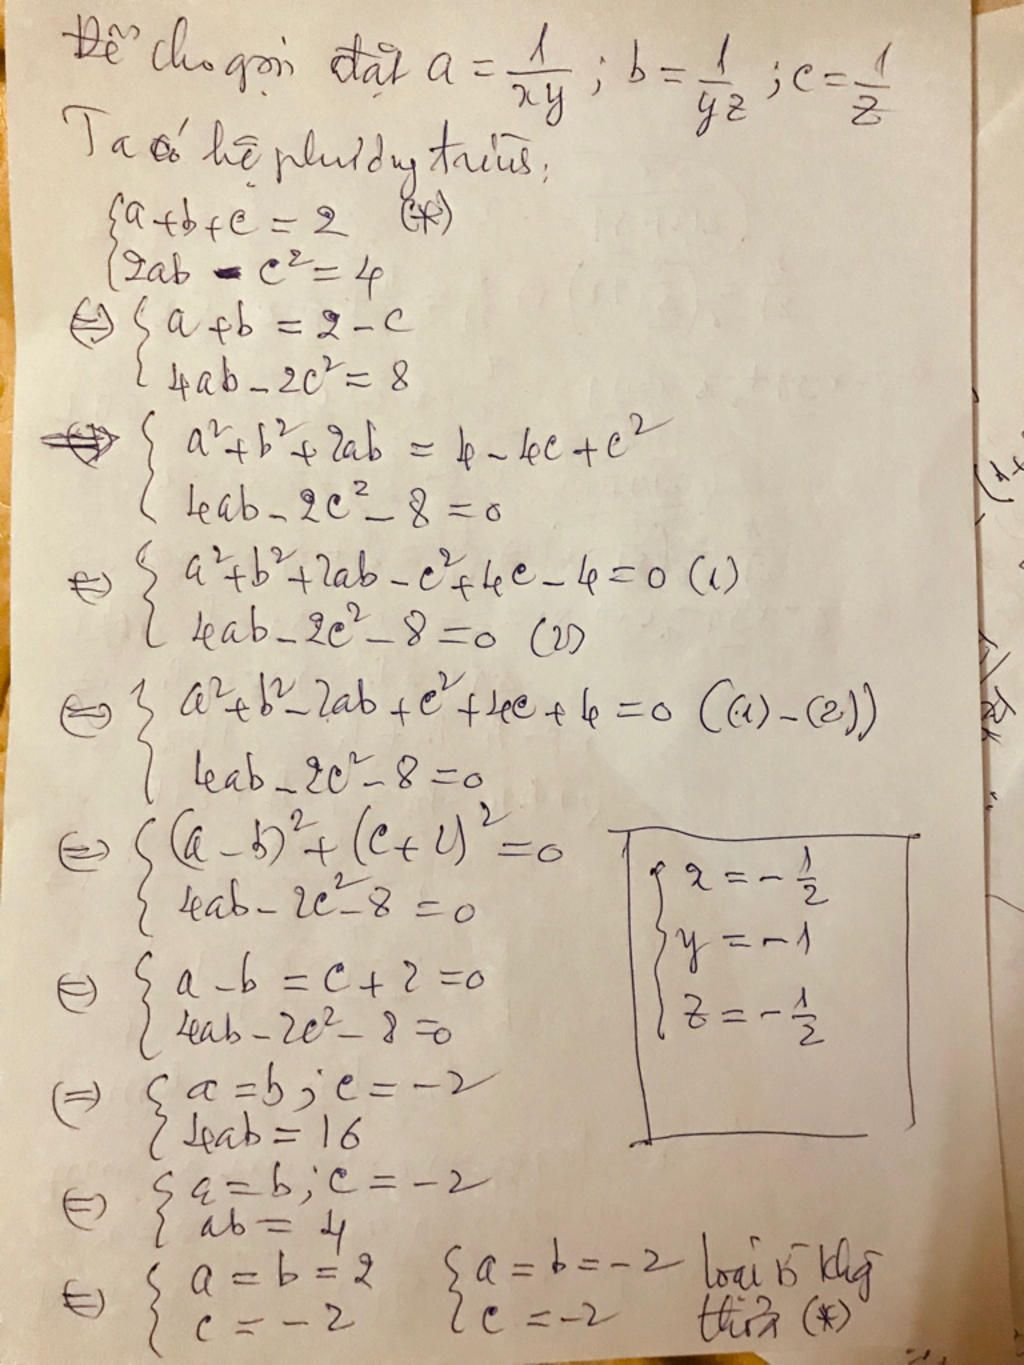 Để cho gọn đặt a = 1/xy ; b = 1/yz ; c = 1/z
Ta có hệ phương trình:
{a+b+c = 2 (*)
{2ab - c² = 4
(=) {a+b = 2-c
{4ab - 2c² = 8
{a²+b²+2ab = 4-4c+c²
{4ab - 2c² - 8 = 0
(=) {a²+b²+2ab-c²+4c-4=0 (1)
{4ab-2c²-8=0 (2)
(=) {a²+b²-2ab+c²+4c+4=0 ((1)-(2))
{4ab-2c²-8=0
(=) {(a-b)²+(c+2)²=0
{4ab-2c²-8=0
(=) {a-b = c+2 =0
{4ab-2c²-8=0
(=) {a=b; c=-2
{4ab=16
(=) {a=b; c=-2
{ab=4
(=) {a=b=2 {a=b=-2 loại vì khg
{c=-2 {c=-2 thỏa (*)
{x = -1/2
{y = -1
{z = -1/2